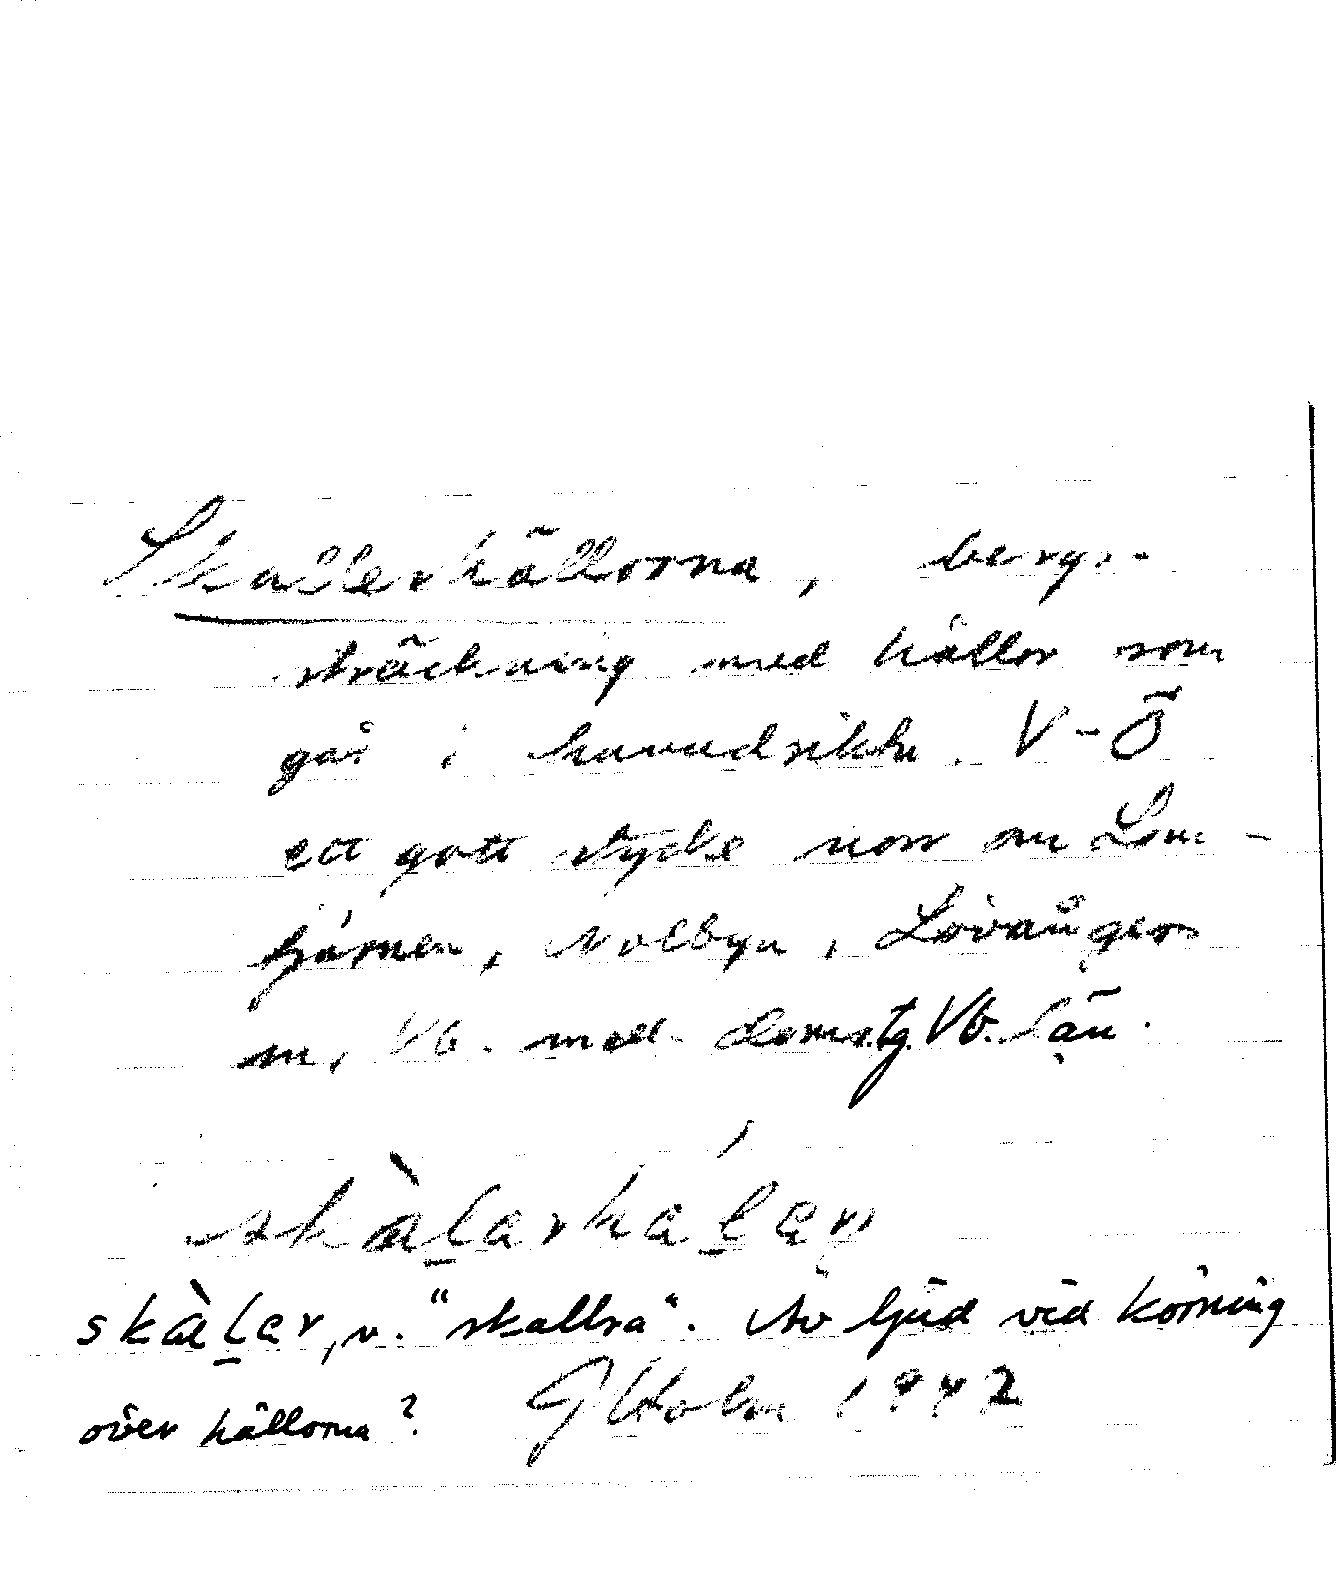 Skallerhällorna, bergs-
sträckning med hällor som
går i huvudsikte V-Ö
ett gott stycke norr om Lom-
tjärnen, Nolbyn, Lövångers
sn, Vb. mell. doms.tg. Vb. län.
skàl̠arháḷaṇ
skàl̠ar, v. "skallra". Av ljud vid körning
över hällorna? G Holm 1942